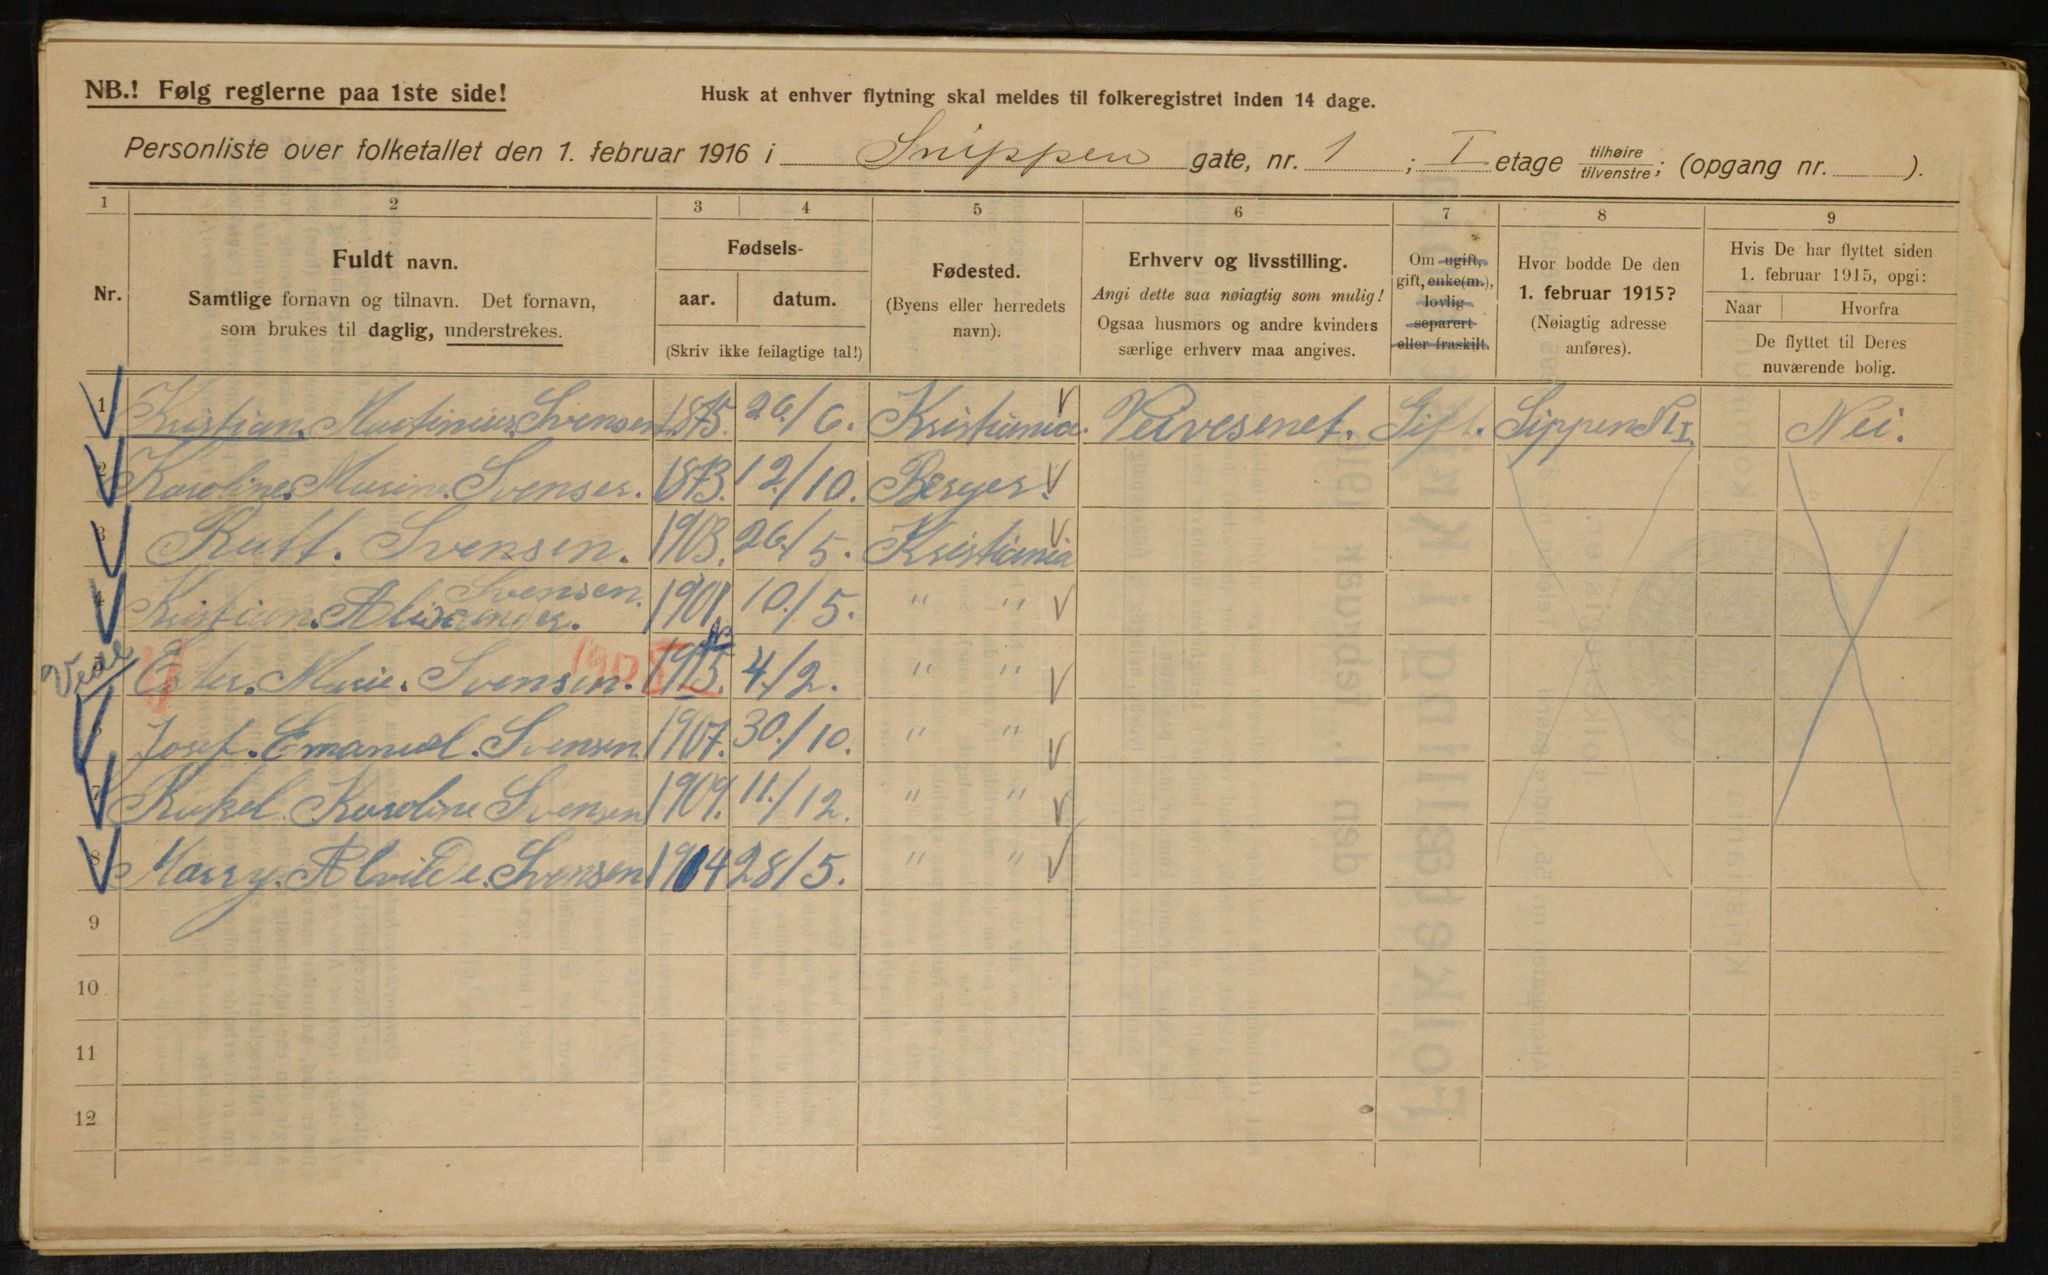 NB.! Følg reglerne paa 1ste side!
Husk at enhver flytning skal meldes til folkeregistret inden 14 dage.
Personliste over folketallet den 1. februar 1916 i Snippen gate, nr. 1 ; I etage tilhøire tilvenstre; (opgang nr. ).
1 2 3 4 5 6 7 8 9
Nr. Fuldt navn. Samtlige fornavn og tilnavn. Det fornavn, som brukes til daglig, understrekes. Fødsels- aar. datum. (Skriv ikke feilagtige tal!) Fødested. (Byens eller herredets navn). Erhverv og livsstilling. Angi dette saa nøiagtig som mulig! Ogsaa husmors og andre kvinders særlige erhverv maa angives. Om ugift, gift, enke(m.), lovlig separert eller fraskilt. Hvor bodde De den 1. februar 1915? (Nøiagtig adresse anføres). Hvis De har flyttet siden 1. februar 1915, opgi: Naar Hvorfra De flyttet til Deres nuværende bolig.
1 Kristian. Martinius. Svensen 1875. 26/6. Kristiania. Veivesenet. Gift. Sippen N I. Nei.
2 Karoline. Marine. Svensen. 1873. 12/10. Berger.
3 Rutt. Svensen. 1903. 26/5. Kristiania
4 Kristian. Alexander. Svensen. 1901. 10/5. " "
5 Ester. Marie. Svensen. 1905 1915. 4/2. " "
6 Josef. Emanuel. Svensen. 1907. 30/10. " "
7 Rakel. Karoline Svensen 1909. 11/12. " "
8 Marry. Alvilde. Svensen 1914 28/5. " "
9
10
11
12